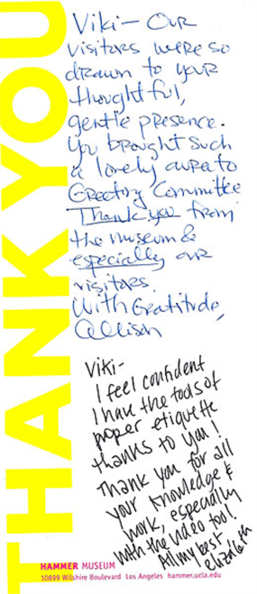 THANK YOU
Viki— Our
visitors were so
drawn to your
thoughtful,
gentle presence.
You brought such
a lovely aura to
Greeting Committee
Thank you from
the museum &
especially our
visitors.
With Gratitude,
Allison
Viki-
I feel confident
I have the tools of
proper etiquette
thanks to you!
Thank you for all
your knowledge &
work, especially
with the video tool.
All my best,
Elizabeth
HAMMER MUSEUM
10899 Wilshire Boulevard Los Angeles hammer.ucla.edu